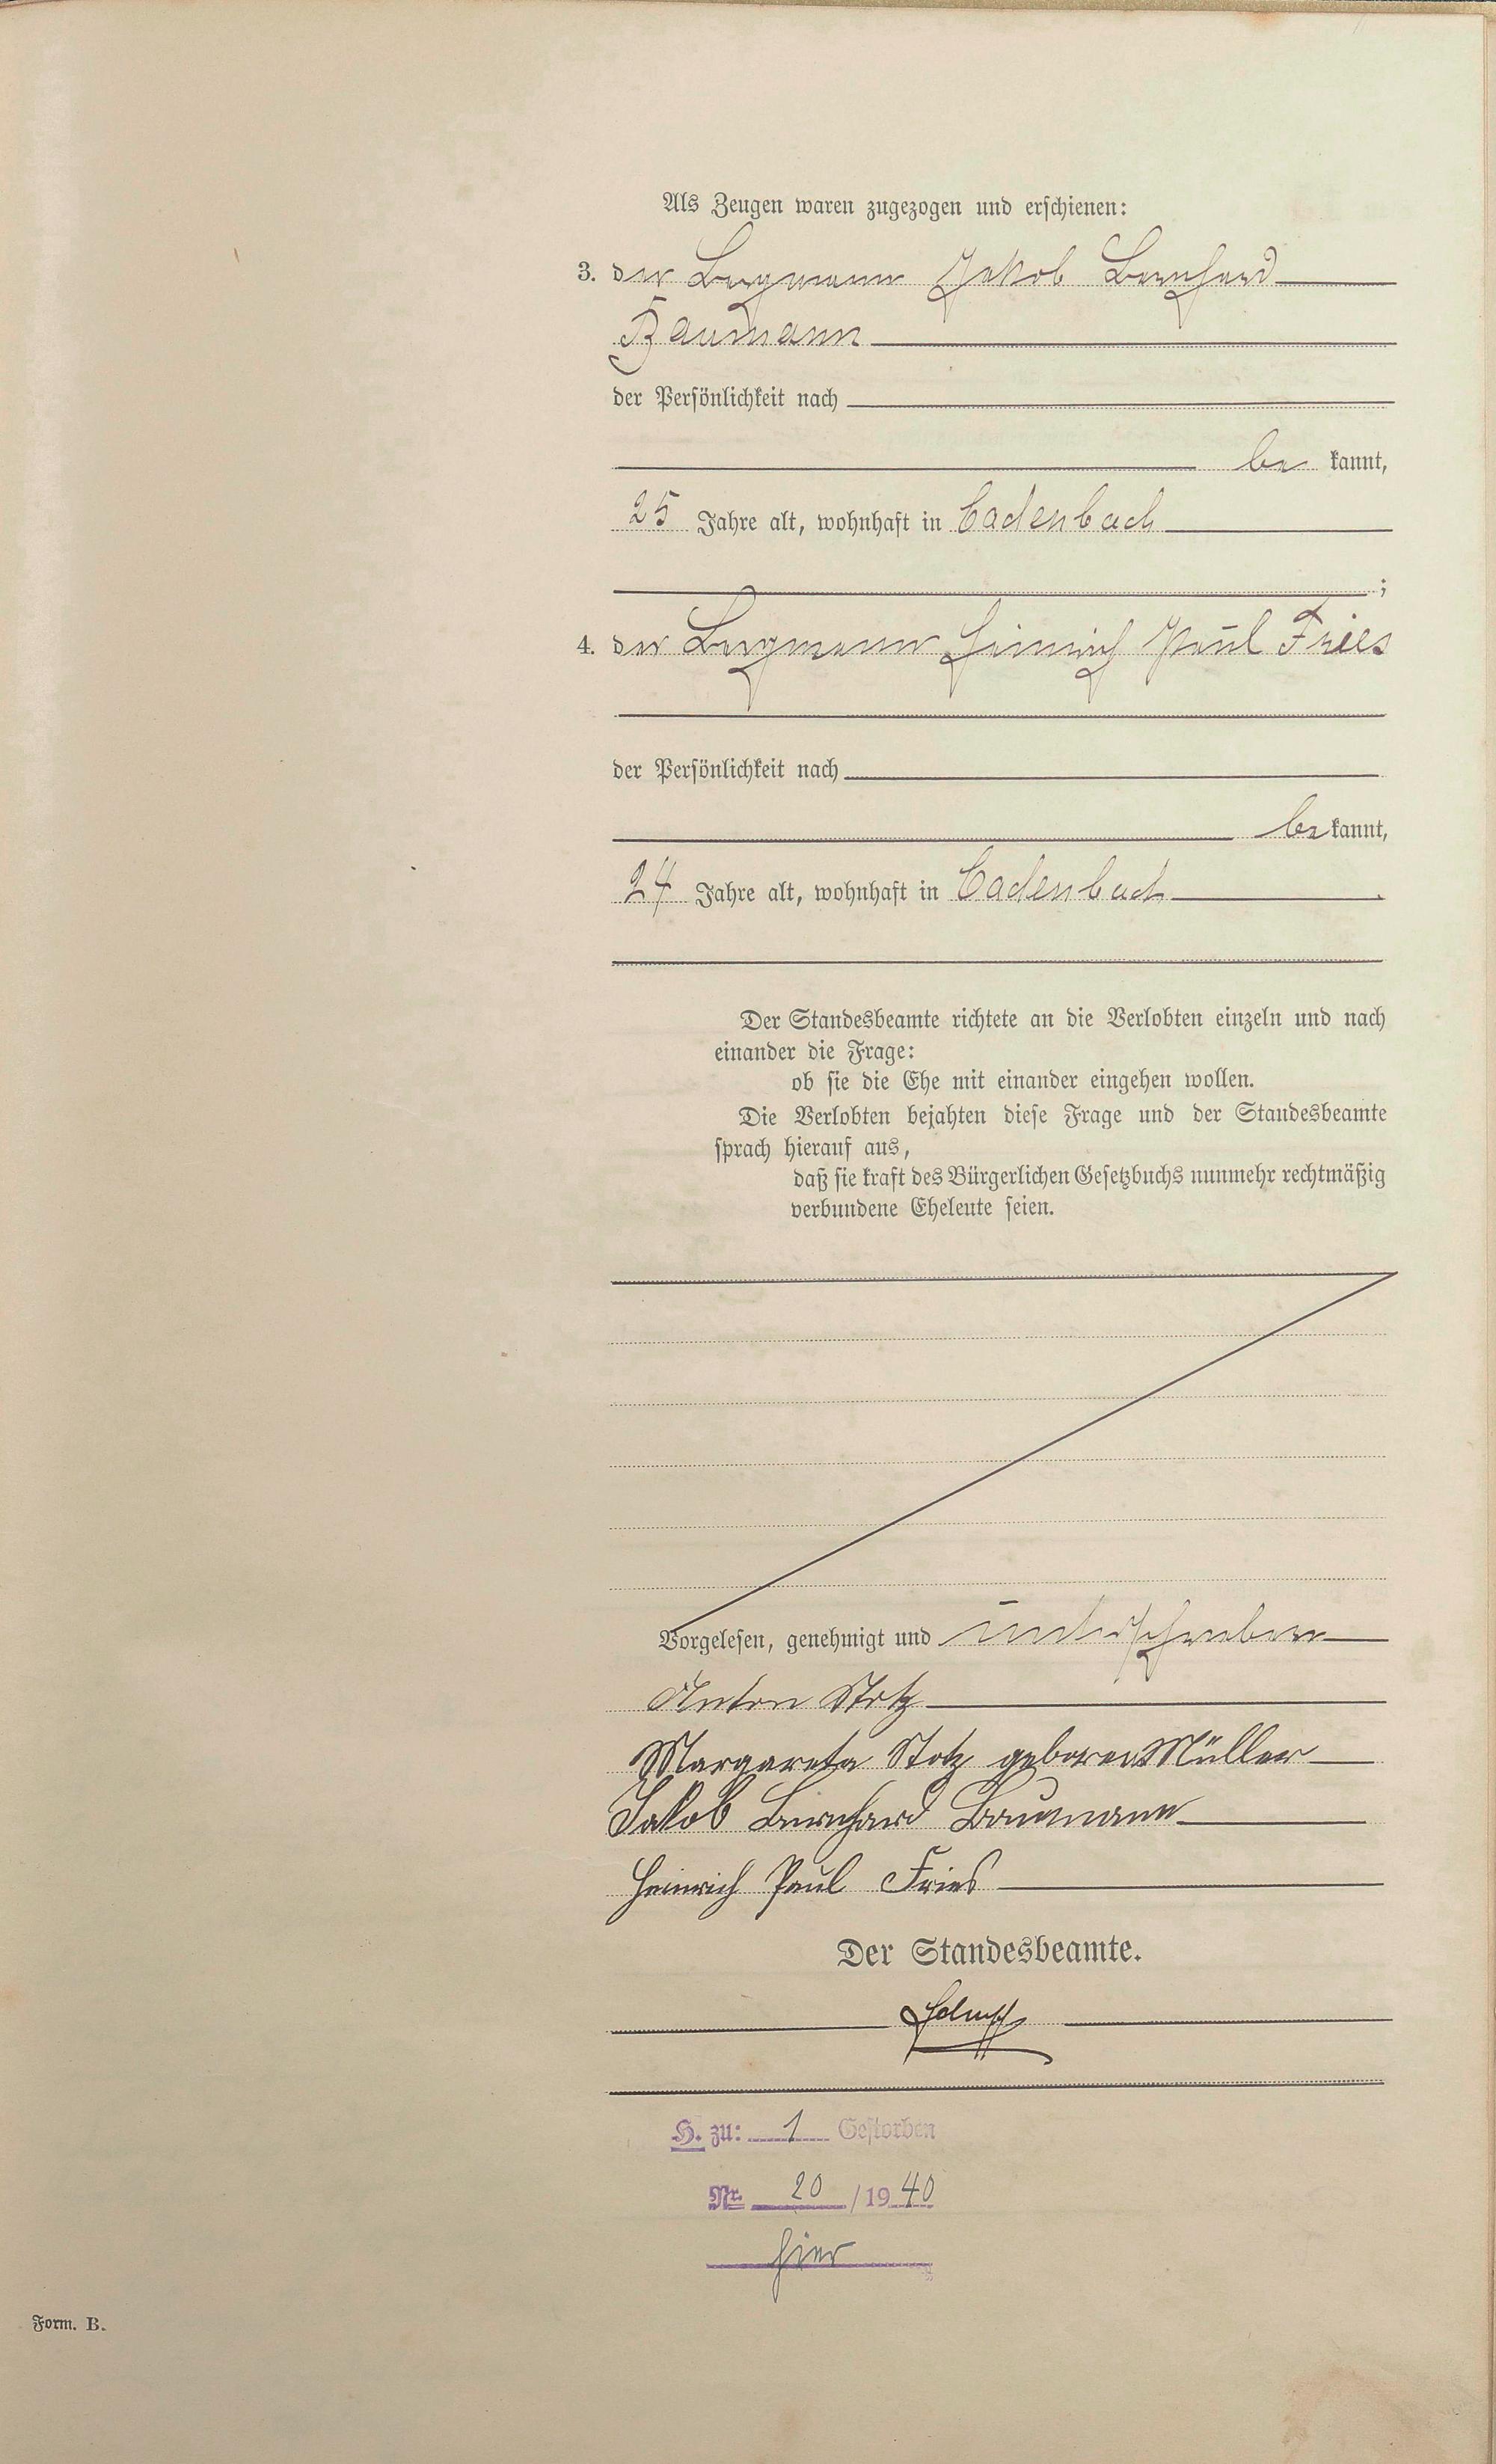 Als Zeugen waren zugezogen und erschienen:
3. der Bergmann Jakob Bernhard
Baumann
der Persönlichkeit nach
be kannt,
25 Jahre alt, wohnhaft in Cadenbach
;
4. der Bergmann Heinrich Paul Fries
der Persönlichkeit nach
be kannt,
24 Jahre alt, wohnhaft in Cadenbach
Der Standesbeamte richtete an die Verlobten einzeln und nach
einander die Frage:
ob sie die Ehe mit einander eingehen wollen.
Die Verlobten bejahten diese Frage und der Standesbeamte
sprach hierauf aus,
daß sie kraft des Bürgerlichen Gesetzbuchs nunmehr rechtmäßig
verbundene Eheleute seien.
Vorgelesen, genehmigt und unterschrieben
Anton Stotz
Margareta Stotz geboren Müller
Jakob Bernhard Baumann
Heinrich Paul Fries
Der Standesbeamte.
H. zu: 1 Gestorben
Nr. 20 / 19 40
hier
Form. B.